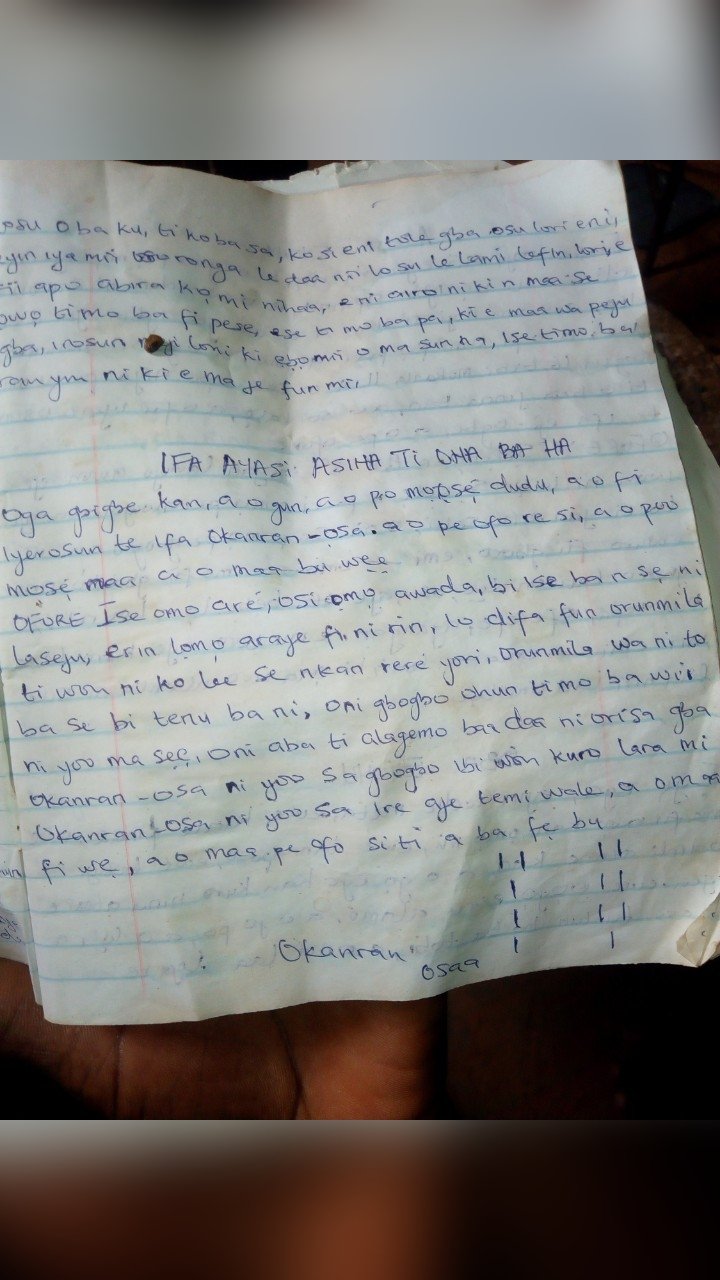 osu oba ku, ti ko ba sa, ko si eni to le gba osu lori eni,
eyin iya mi osoronga le daa nii lo su le lami lefin, lori e
fii apo abira ko mi nihaa, eni airo ni kin maa se
owo ti mo ba fi pese, ese ti mo ba pa, ki e maa wa peju
gba, irosun loni ki ebo mi o ma sun na, Ise timo ba
ni ki e ma je fun mi,
IFA AYASI ASIHA Ti ONA BA HA
Oga gbigbe kan, a o gun, a o po mọ ọsẹ dudu, a o fi
Iyerosun te Ifa Okanran-osa. a o pe ofo re si, a o poo
mọsẹ maa a o maa bu wẹẹ
OFORE Ise omo are, osi omo awada, bi Ise ba n sẹ ni
laseju, erin lomo araye fi ni rin, lo difa fun orunmila
ti won ni ko lee se nkan rere yori, orunmila wa ni to
ba se bi tenu ba ni, oni gbogbo ohun timo ba wii
ni yoo ma sẹẹ, oni aba ti alagemo baa daa ni orisa gba
Okanran-osa ni yoo sa gbogbo ibi won kuro lara mi
Okanran-osa ni yoo sa Ire aje temi wale, a o maa
fi wẹ, a o maa pe ofo si ti a ba fẹ bu
I I I I
I I I
I I I
Okanran I I
osaa